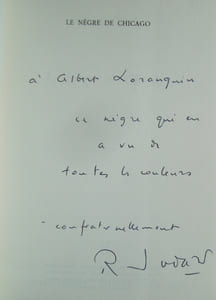 LE NÈGRE DE CHICAGO
à Albert Loranquin
ce nègre qui en
a vu de
toutes les couleurs
- confraternellement
R